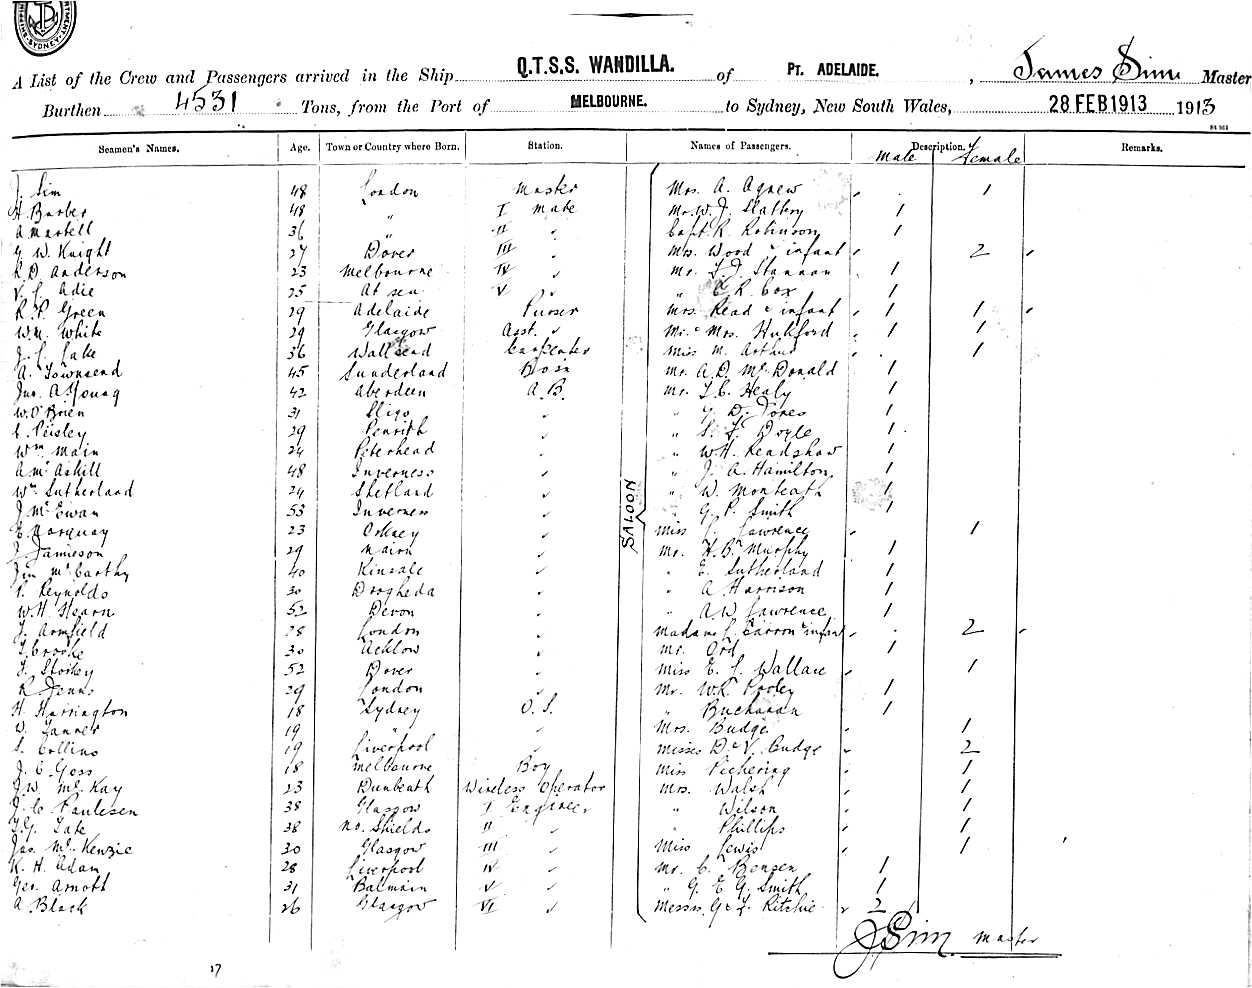 A List of the Crew and Passengers arrived in the Ship Q.T.S.S. WANDILLA. of PT. ADELAIDE. , James Sim Master
Burthen 4531 Tons, from the Port of MELBOURNE. to Sydney, New South Wales, 28 FEB 1913 1913
Seamen's Names. Age. Town or Country where Born. Station. Names of Passengers. Description. Remarks.
Male Female
SALOON
J. Sim 48 London Master Mrs. A. Agnew 1
H. Barber 48 " I Mate Mr. W. J. Slattery 1
A Martell 36 " II " Capt. R. Robinson 1
G. W. Knight 27 Dover III " Mrs. Wood & infant 2
R. D. Anderson 23 Melbourne IV " Mr. 1
V. L. Adie 25 At sea V " " C. R. Cox 1
R. P. Green 29 Adelaide Purser Mrs. Read & infant 1 1
W. M. White 29 Glasgow Asst. " Mr. & Mrs. Hulford 1 1
J. L. Lake 36 Wallsend Carpenter Miss M. Arthur 1
A. Townsend 45 Sunderland Bosn Mr. A. D. McDonald 1
Jno. A. Young 42 Aberdeen A.B. Mr. L. C. Healy 1
W. O'Brien 31 Sligo " " 1
C. Peisley 29 Penrith " " S. L. Doyle 1
Wm Main 24 Peterhead " " W. H. Readshaw 1
A McAskill 48 Inverness " " J. A. Hamilton 1
Wm Sutherland 24 Shetland " " W. Monteath 1
J McEwan 53 Inverness " " G. P. Smith 1
E. Marquay 23 Orkney " Miss Lawrence 1
J. Jamieson 29 Nairn " Mr. H. B. Murphy 1
Jim McCarthy 40 Kinsale " " E. Sutherland 1
T. Reynolds 30 Drogheda " " A Harrison 1
W. H. Hearn 52 Devon " " A. W. Lawrence 1
J. Armfield 28 London " Madame L. Carron & infant 2
J. Crooke 30 Acklow " Mr. Ord 1
J. Storkey 52 Dover " Miss E. L. Wallace 1
R Jenns 29 London " Mr. W. R. Pooley 1
H Harrington 18 Sydney O.S. " Buchanan 1
W. Tanner 19 " " Mrs. Budge 1
S. Collins 19 Liverpool " Misses D. & V. Budge 2
J. E. Goss 18 Melbourne Boy Miss Pickering 1
J. W. McKay 23 Dunbeath Wireless Operator Mrs. Walsh 1
J. C. Paulesen 38 Glasgow I Engineer " Wilson 1
T. G. Tate 38 No. Shields II " " Phillips 1
Jas McKenzie 30 Glasgow III " Miss Lewis 1
K. H. Adam 28 Liverpool IV " Mr. C. Bensen 1
Geo. Arnott 31 Balmain V " " G. E. G. Smith 1
A. Black 26 Glasgow VI " Messrs. G & J. Ritchie 2
J Sim Master
17